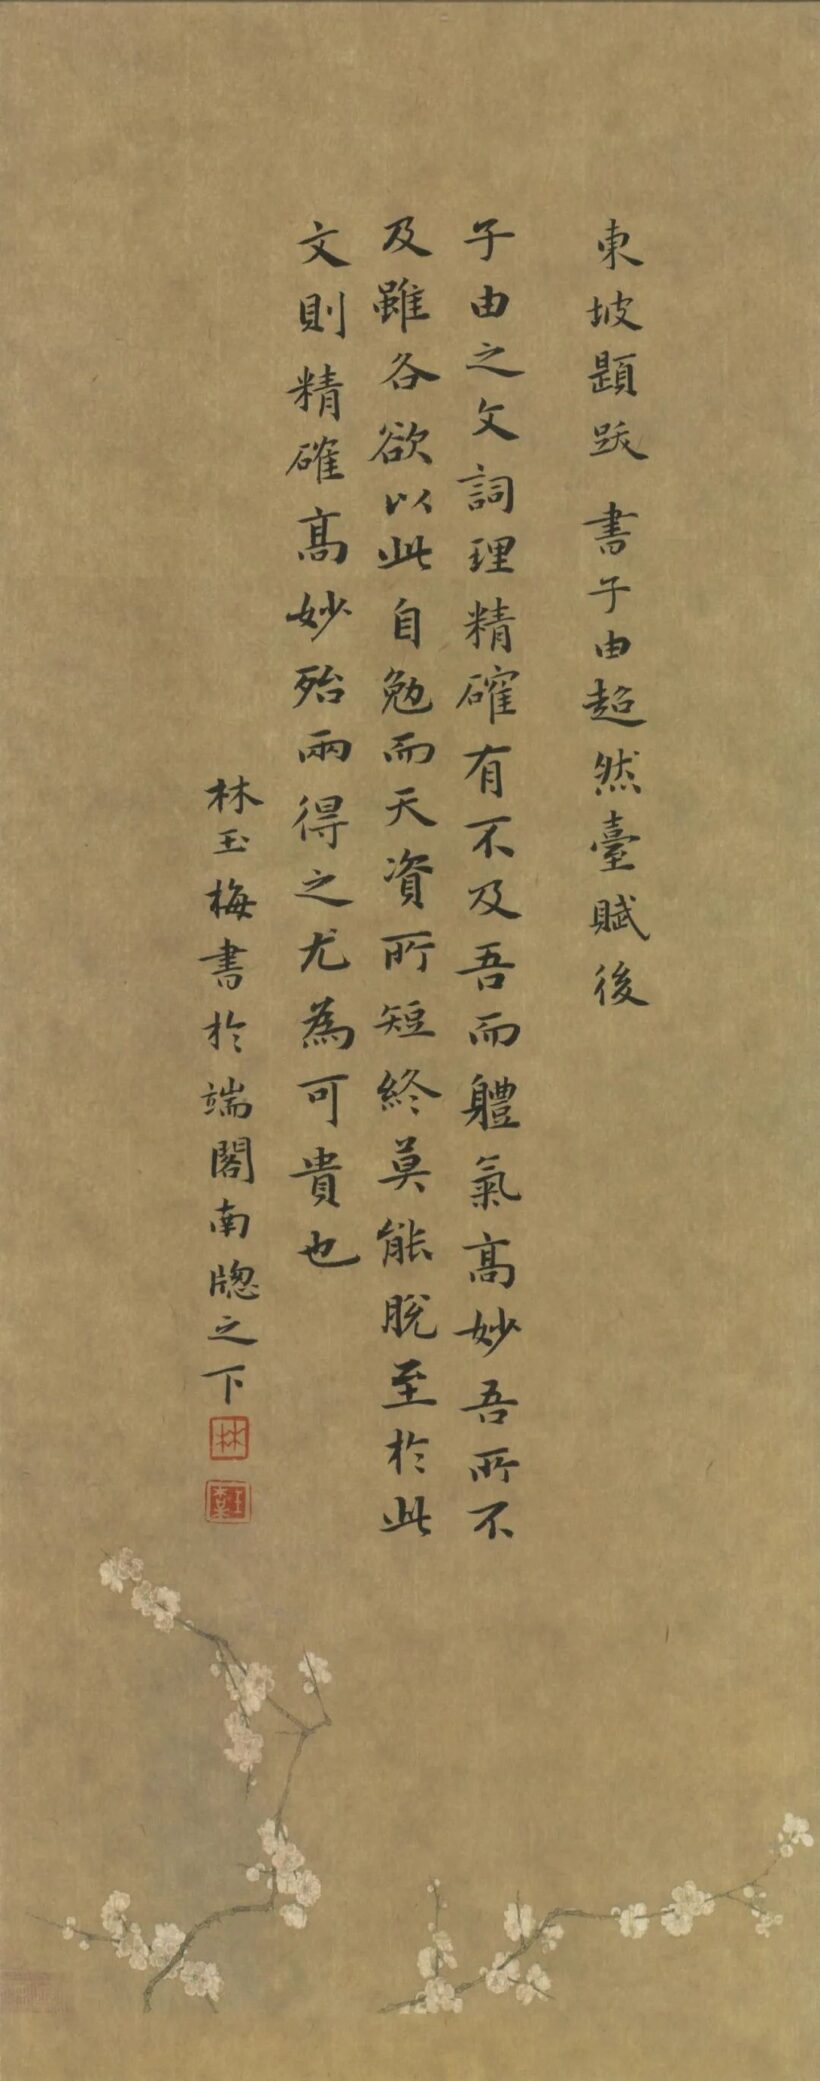 東坡題跋 書子由超然臺賦後
子由之文詞理精確有不及吾而體氣高妙吾所不
及雖各欲以此自勉而天資所短終莫能脫至於此
文則精確高妙殆兩得之尤為可貴也
林玉梅書於端閣南牕之下
林